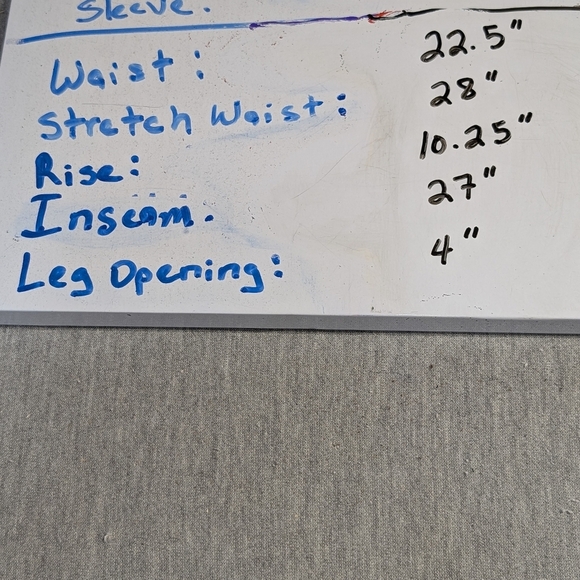 Sleeve.
Waist: 22.5"
Stretch Waist: 28"
Rise: 10.25"
Inseam. 27"
Leg Opening: 4"